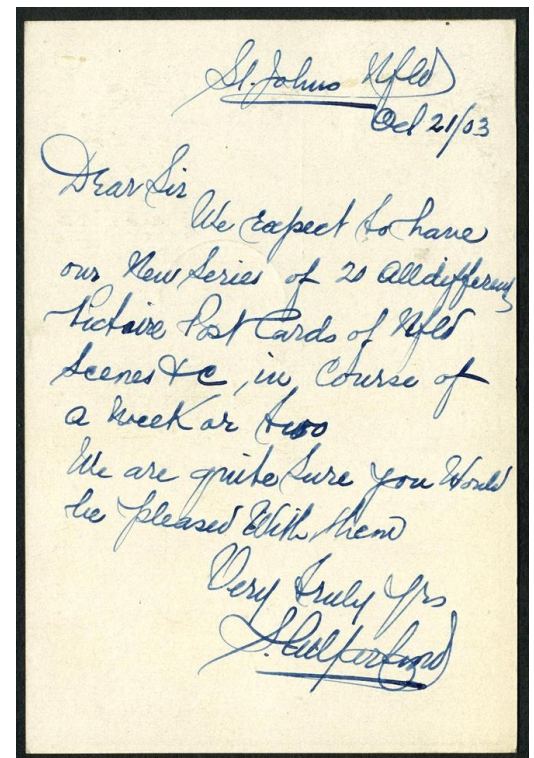 St. Johns Nfld
Oct 21/03
Dear Sir
We expect to have
our New Series of 20 all different
Picture Post Cards of Nfld
Scenes &c, in course of
a week or two
We are quite Sure you Would
be pleased With them
Very truly yrs